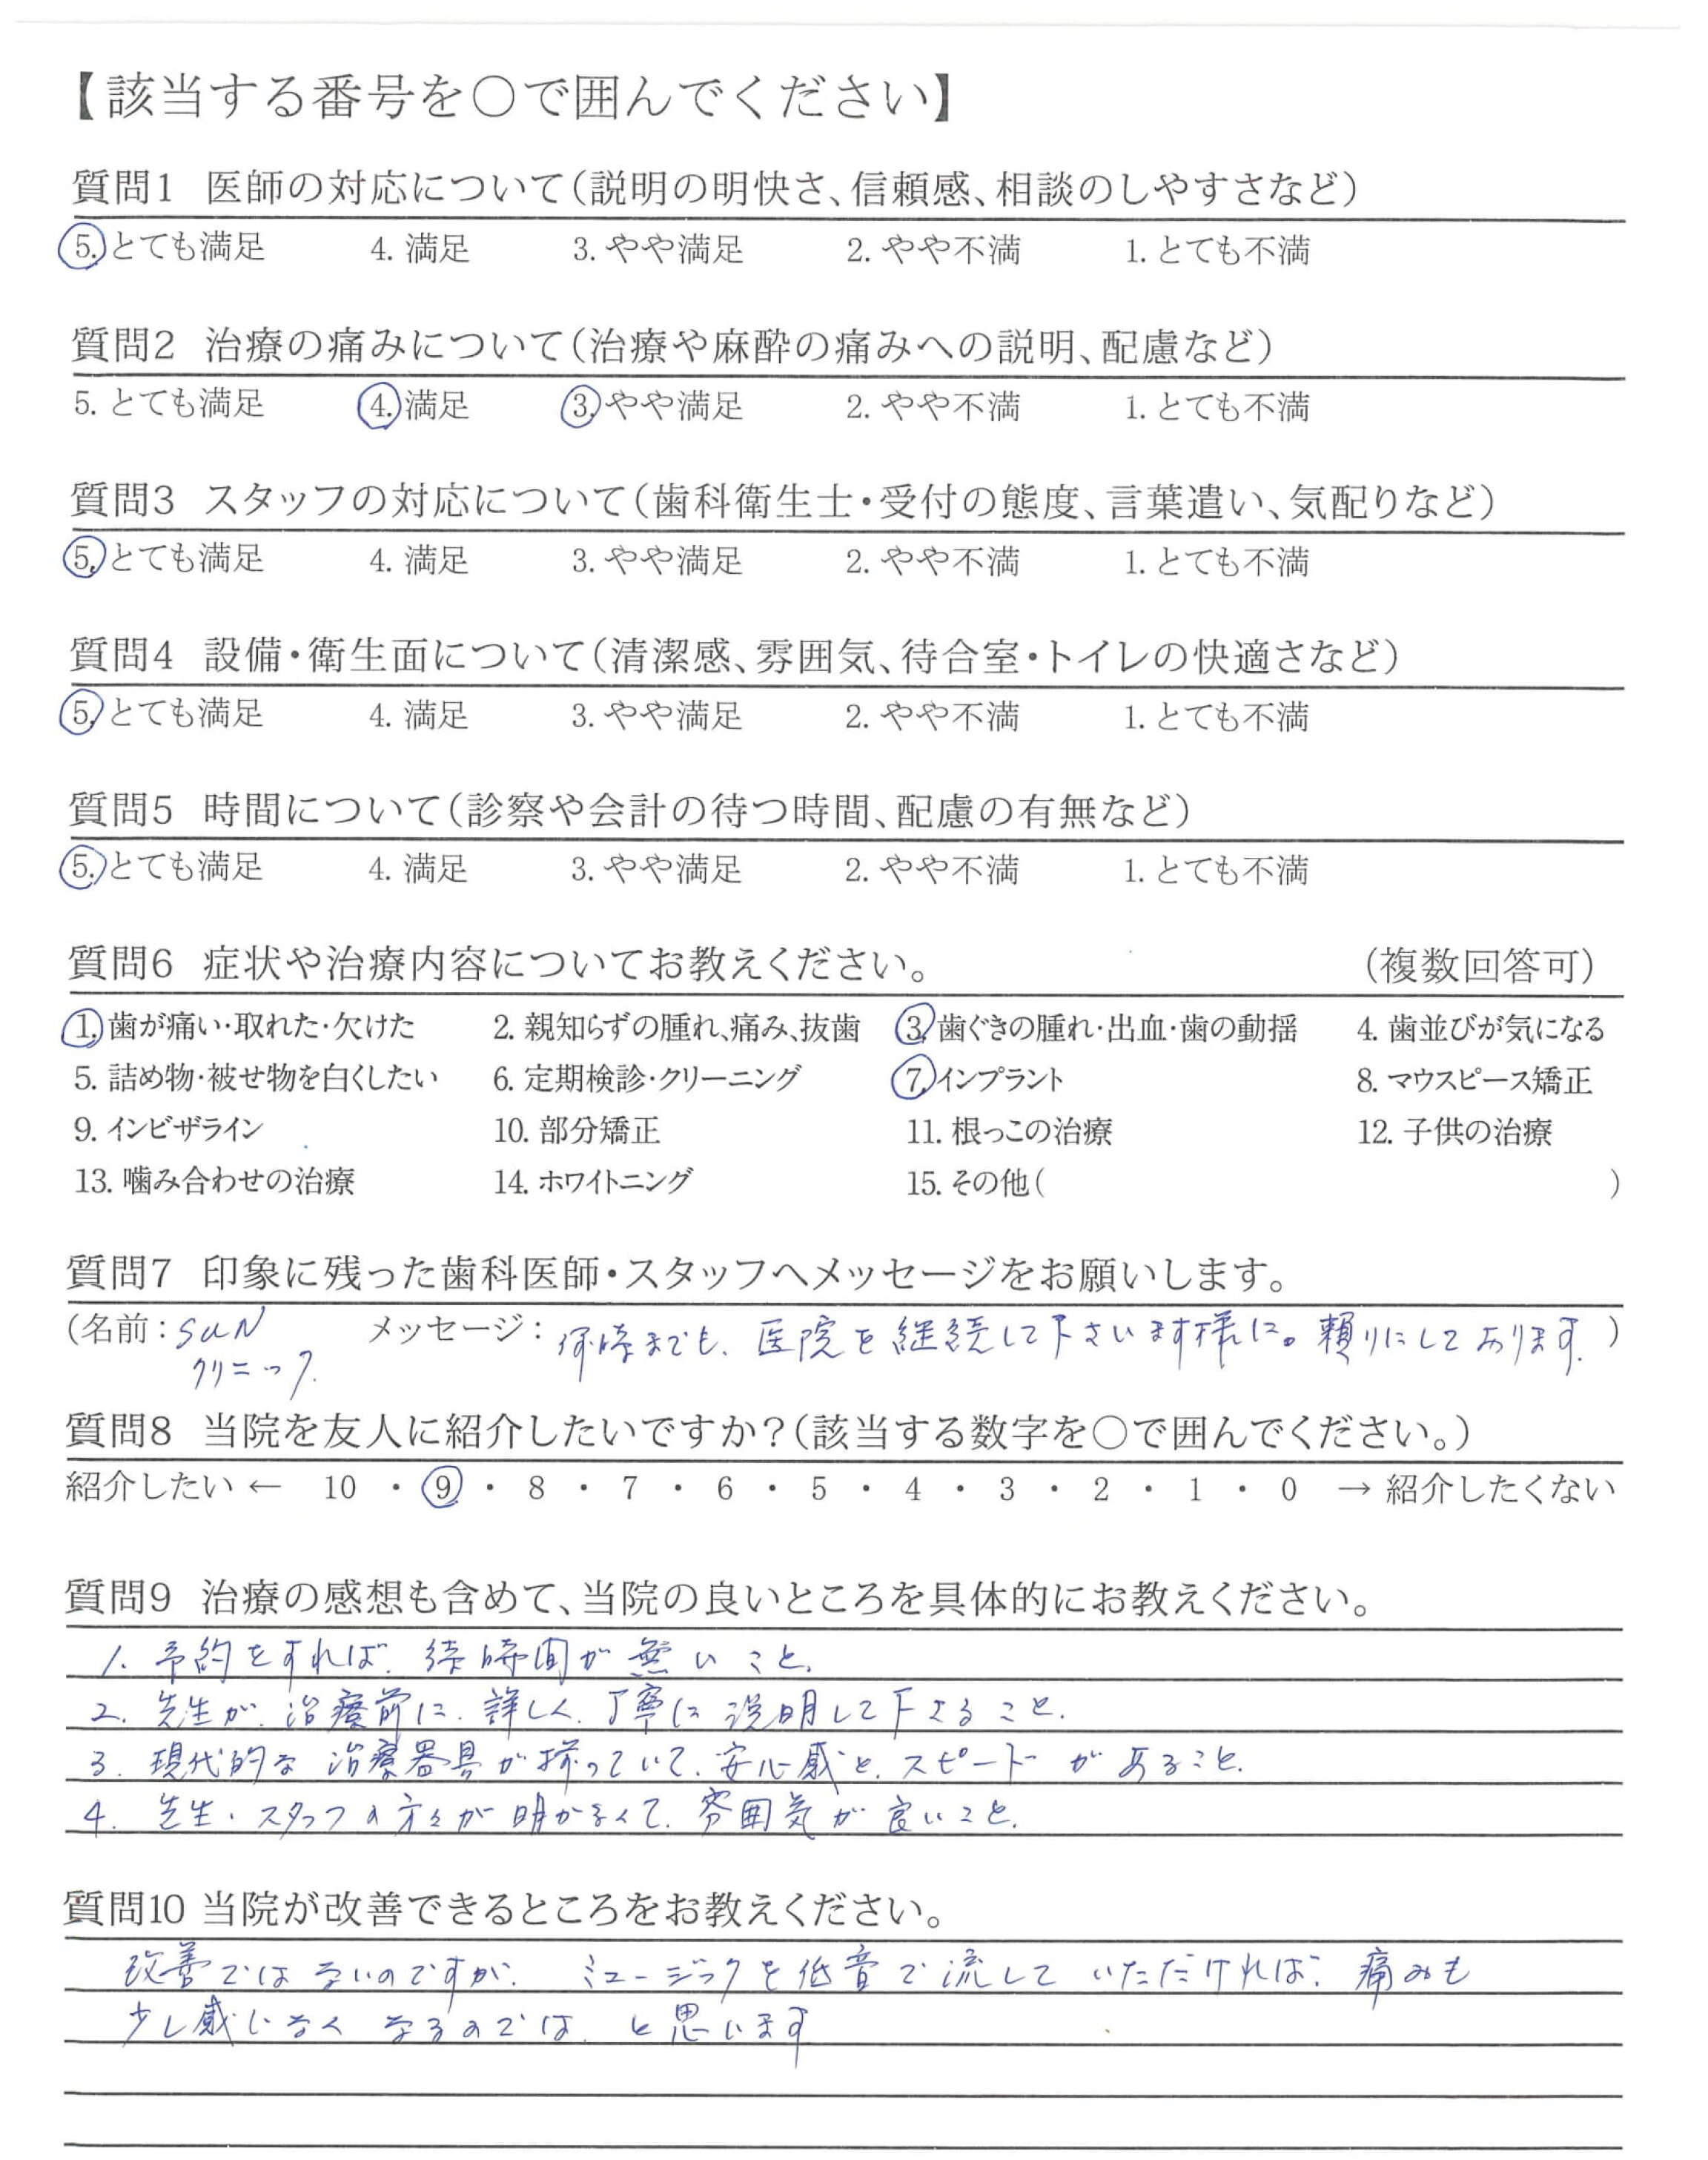 【該当する番号を○で囲んでください】
質問1 医師の対応について(説明の明快さ、信頼感、相談のしやすさなど)
5. とても満足 4. 満足 3. やや満足 2. やや不満 1. とても不満
質問2 治療の痛みについて(治療や麻酔の痛みへの説明、配慮など)
5. とても満足 4. 満足 3. やや満足 2. やや不満 1. とても不満
質問3 スタッフの対応について(歯科衛生士・受付の態度、言葉遣い、気配りなど)
5. とても満足 4. 満足 3. やや満足 2. やや不満 1. とても不満
質問4 設備・衛生面について(清潔感、雰囲気、待合室・トイレの快適さなど)
5. とても満足 4. 満足 3. やや満足 2. やや不満 1. とても不満
質問5 時間について(診察や会計の待つ時間、配慮の有無など)
5. とても満足 4. 満足 3. やや満足 2. やや不満 1. とても不満
質問6 症状や治療内容についてお教えください。 (複数回答可)
1. 歯が痛い・取れた・欠けた 2. 親知らずの腫れ、痛み、抜歯 3. 歯ぐきの腫れ・出血・歯の動揺 4. 歯並びが気になる
5. 詰め物・被せ物を白くしたい 6. 定期検診・クリーニング 7. インプラント 8. マウスピース矯正
9. インビザライン 10. 部分矯正 11. 根っこの治療 12. 子供の治療
13. 噛み合わせの治療 14. ホワイトニング 15. その他( )
質問7 印象に残った歯科医師・スタッフへメッセージをお願いします。
(名前：SUN メッセージ：何時までも、医院を継続して下さいます様に。頼りにしております。)
クリニック.
質問8 当院を友人に紹介したいですか？(該当する数字を○で囲んでください。)
紹介したい ← 10 ・ 9 ・ 8 ・ 7 ・ 6 ・ 5 ・ 4 ・ 3 ・ 2 ・ 1 ・ 0 → 紹介したくない
質問9 治療の感想も含めて、当院の良いところを具体的にお教えください。
1. 予約をすれば、待時間が無いこと.
2. 先生が、治療前に、詳しく、丁寧に説明して下さること.
3. 現代的な治療器具が揃っていて、安心感と、スピードがあること.
4. 先生・スタッフの方々が明かるくて、雰囲気が良いこと.
質問10 当院が改善できるところをお教えください。
改善ではないのですが、ミュージックを低音で流していただければ、痛みも
少し感じなくなるのでは、と思います